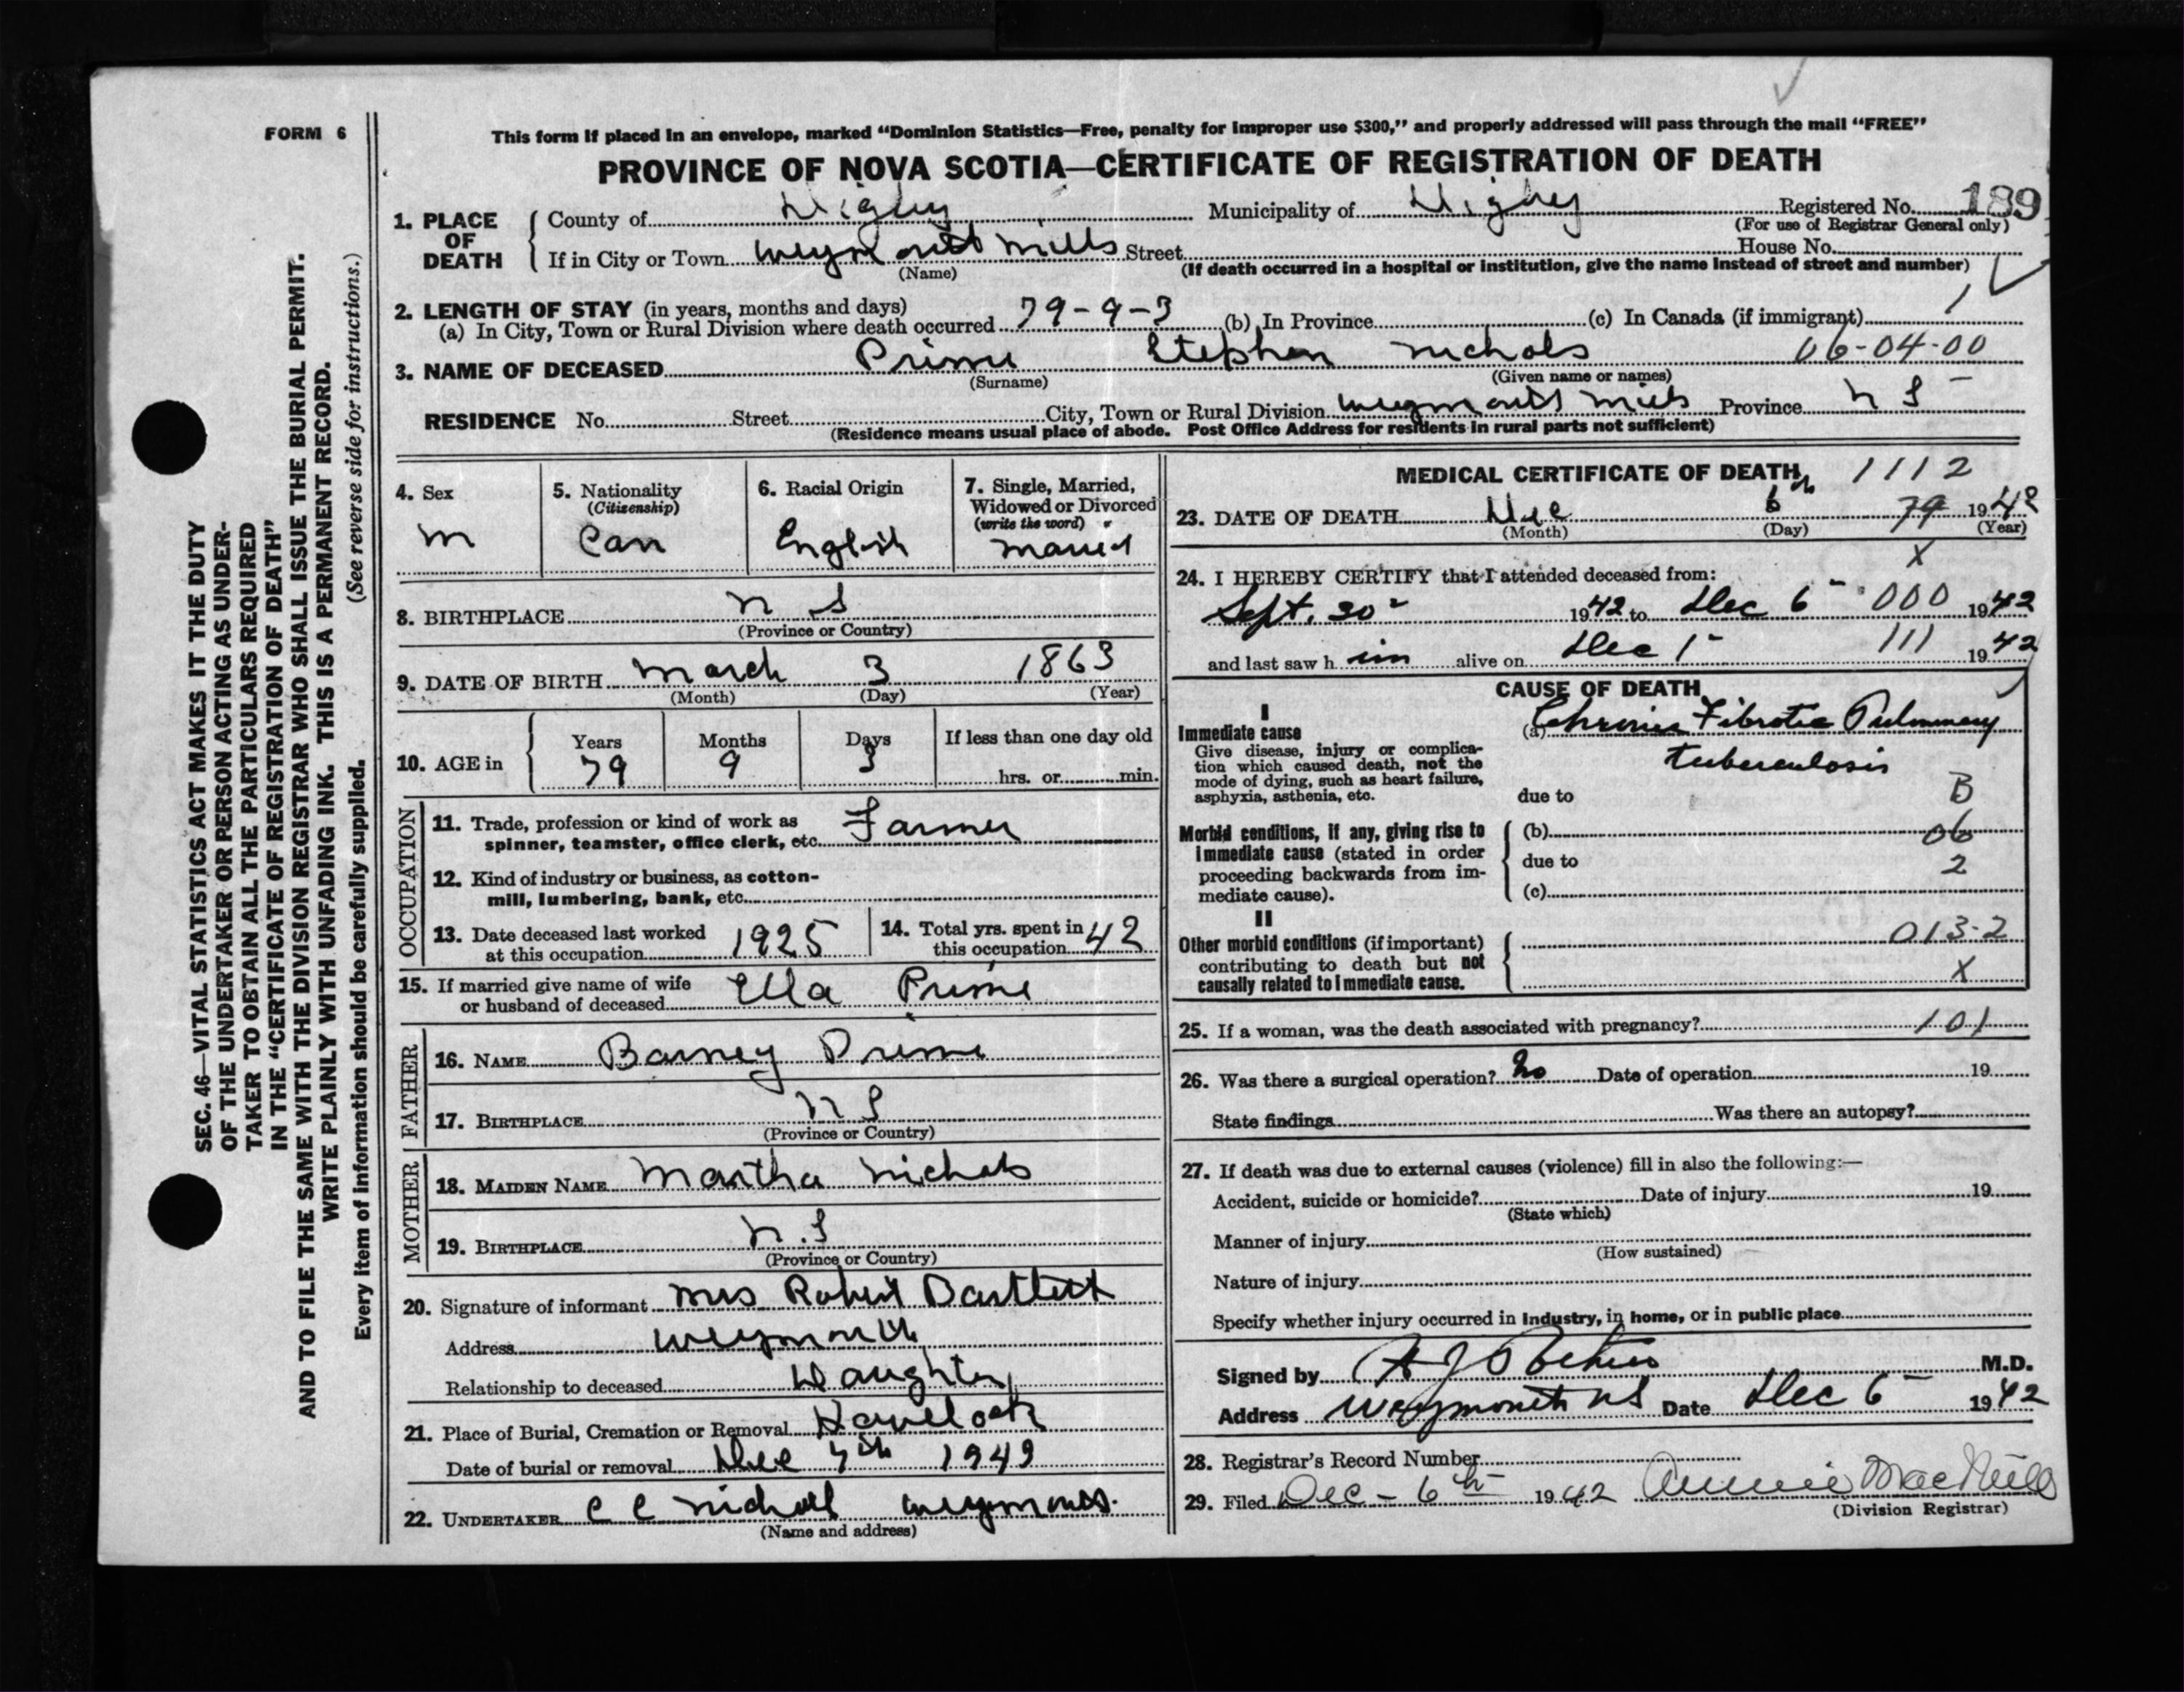 FORM 6
This form if placed in an envelope, marked “Dominion Statistics—Free, penalty for improper use $300,” and properly addressed will pass through the mail “FREE”
PROVINCE OF NOVA SCOTIA—CERTIFICATE OF REGISTRATION OF DEATH
1. PLACE OF DEATH
County of Digby Municipality of Digby Registered No. 189
(For use of Registrar General only)
If in City or Town Weymouth Mills Street House No.
(Name) (If death occurred in a hospital or institution, give the name instead of street and number)
2. LENGTH OF STAY (in years, months and days)
(a) In City, Town or Rural Division where death occurred 79-9-3 (b) In Province (c) In Canada (if immigrant)
3. NAME OF DECEASED Prime Stephen Nichols 06-04-00
(Surname) (Given name or names)
RESIDENCE No. Street City, Town or Rural Division Weymouth Mills Province N S
(Residence means usual place of abode. Post Office Address for residents in rural parts not sufficient)
4. Sex
M
5. Nationality
(Citizenship)
Can
6. Racial Origin
English
7. Single, Married,
Widowed or Divorced
(write the word)
Married
8. BIRTHPLACE N S
(Province or Country)
9. DATE OF BIRTH March 3 1863
(Month) (Day) (Year)
10. AGE in
Years Months Days If less than one day old
79 9 3 hrs. or min.
OCCUPATION
11. Trade, profession or kind of work as
spinner, teamster, office clerk, etc. Farmer
12. Kind of industry or business, as cotton-
mill, lumbering, bank, etc.
13. Date deceased last worked
at this occupation 1925
14. Total yrs. spent in
this occupation 42
15. If married give name of wife
or husband of deceased Ella Prime
FATHER
16. NAME Barney Prime
17. BIRTHPLACE N S
(Province or Country)
MOTHER
18. MAIDEN NAME Martha Nichols
19. BIRTHPLACE N.S
(Province or Country)
20. Signature of informant Mrs Robert Bartlett
Address Weymouth
Relationship to deceased Daughter
21. Place of Burial, Cremation or Removal Havelock
Date of burial or removal Dec 7th 1942
22. UNDERTAKER C C Nichol Weymouth.
(Name and address)
MEDICAL CERTIFICATE OF DEATH 1112
23. DATE OF DEATH Dec 6 79 1942
(Month) (Day) (Year)
X
24. I HEREBY CERTIFY that I attended deceased from:
Sept. 30 1942 to Dec 6 000 1942
and last saw h im alive on Dec 1 111 1942
CAUSE OF DEATH
I
Immediate cause
Give disease, injury or complica-
tion which caused death, not the
mode of dying, such as heart failure,
asphyxia, asthenia, etc.
(a) Chronic Fibrotic Pulmonary
tuberculosis
due to B
Morbid conditions, if any, giving rise to
immediate cause (stated in order
proceeding backwards from im-
mediate cause).
(b) 06
due to 2
(c)
II
Other morbid conditions (if important)
contributing to death but not
causally related to immediate cause.
013-2
X
25. If a woman, was the death associated with pregnancy? 101
26. Was there a surgical operation? No Date of operation 19
State findings Was there an autopsy?
27. If death was due to external causes (violence) fill in also the following:—
Accident, suicide or homicide? Date of injury 19
(State which)
Manner of injury
(How sustained)
Nature of injury
Specify whether injury occurred in industry, in home, or in public place
Signed by M.D.
Address Weymouth NS Date Dec 6 1942
28. Registrar's Record Number
29. Filed Dec - 6th 1942 Annie MacNeill
(Division Registrar)
SEC. 46—VITAL STATISTICS ACT MAKES IT THE DUTY
OF THE UNDERTAKER OR PERSON ACTING AS UNDER-
TAKER TO OBTAIN ALL THE PARTICULARS REQUIRED
IN THE “CERTIFICATE OF REGISTRATION OF DEATH”
AND TO FILE THE SAME WITH THE DIVISION REGISTRAR WHO SHALL ISSUE THE BURIAL PERMIT.
WRITE PLAINLY WITH UNFADING INK. THIS IS A PERMANENT RECORD.
Every item of information should be carefully supplied. (See reverse side for instructions.)